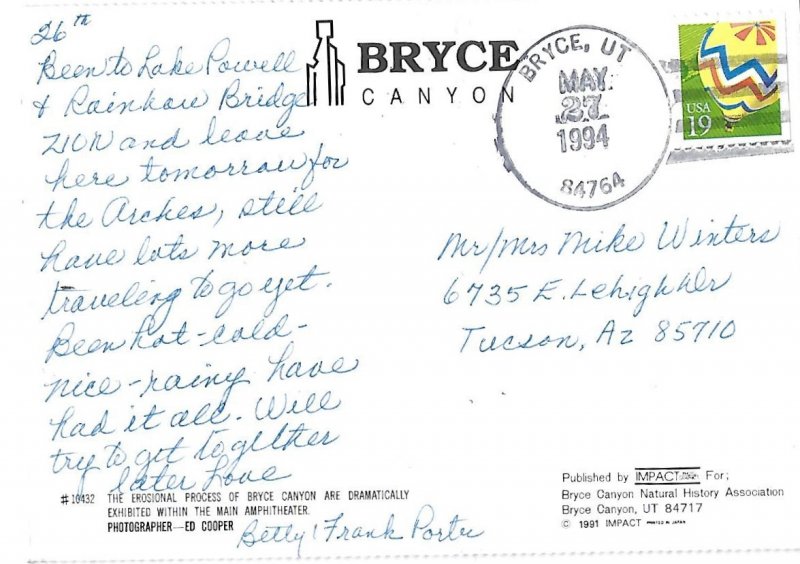 26th
Been to Lake Powell
& Rainbow Bridge
ZION and leave
here tomorrow for
the Arches, still
have lots more
traveling to go yet.
Been hot-cold-
nice-rainy have
had it all. Will
try to get together
later Love
Betty & Frank Porter
BRYCE
CANYON
BRYCE, UT
MAY
27
1994
84764
USA
19
Mr/Mrs Mike Winters
6735 E. Lehigh Dr
Tucson, Az 85710
#10432 THE EROSIONAL PROCESS OF BRYCE CANYON ARE DRAMATICALLY
EXHIBITED WITHIN THE MAIN AMPHITHEATER.
PHOTOGRAPHER—ED COOPER
Published by IMPACT For;
Bryce Canyon Natural History Association
Bryce Canyon, UT 84717
© 1991 IMPACT PRINTED IN JAPAN